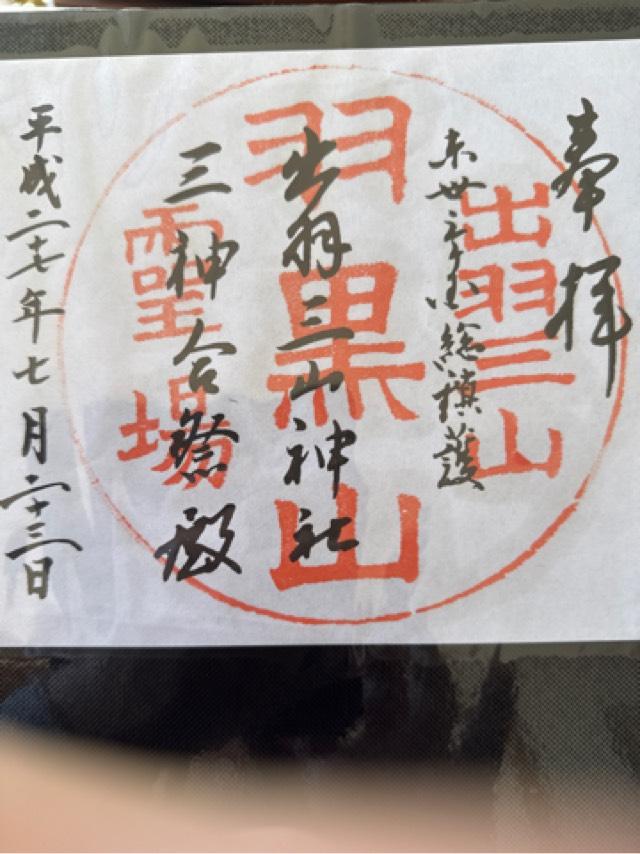 奉拝
出羽三山
東北 総鎮護
羽黒山
出羽三山神社
三神合祭殿
霊場
平成二十七年七月二十三日